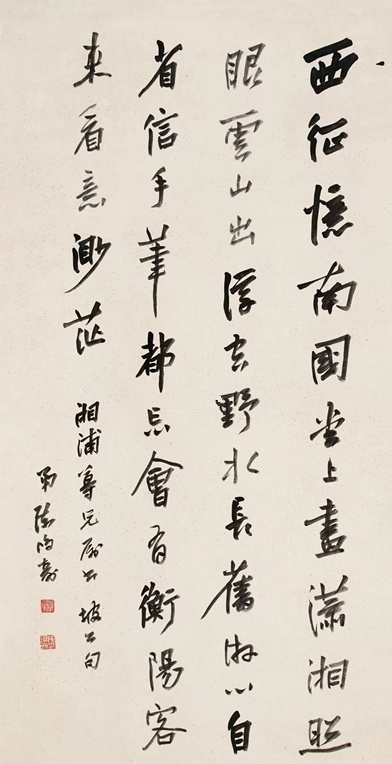 西征憶南國堂上畫瀟湘照
眼雲山出浮空野水長舊游心自
省信手筆都忘會有衡陽客
來看意渺茫
湘浦尊兄屬書 坡公句
弟